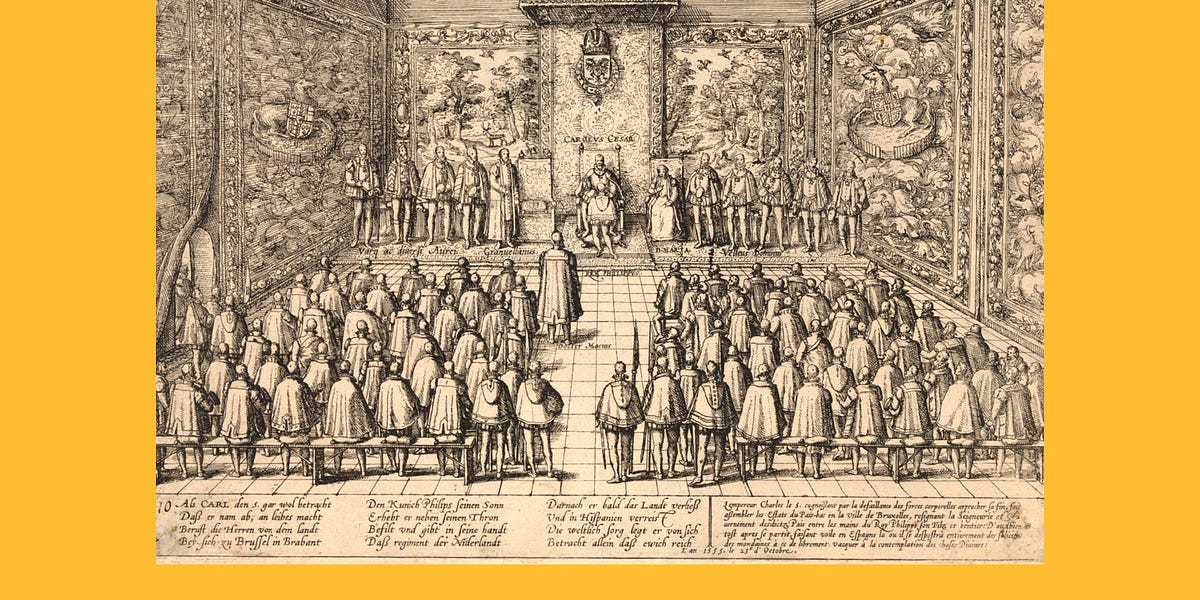 CAROLVS CESAR
REX PHILIPPVS
10
Als CARL den 5. gar wol betracht
Daß er nam ab, an leibes macht
Beruft die Herren von dem landt
Beÿ sich zu Brussel in Brabant
Den Kunich Philips seinen Sonn
Erhebt er neben seinen Thron
Befilt und gibt in seine handt
Daß regiment der Niderlandt
Darnach er bald das Landt verließ
Vnd in Hispanien verreist
Die weltlich sorg legt er von sich
Betracht allein daß ewich reich
L'empereur Charles le 5. cognoissant par la defaillance des forces corporelles approcher sa fin, fait
assembler les Estats du Pais-bas en la ville de Bruxelles, resignant la Seigneurie et Gou-
vernement desdicts Pais entre les mains du Roy Philippe son Filz, et bientost
tost apres se partit, faisant voile en Espagne la ou il se despestra entierement des
mondaines a ce de librement vacquer a la contemplation des choses Divines:
L'an 1555. le 25 d'Octobre.